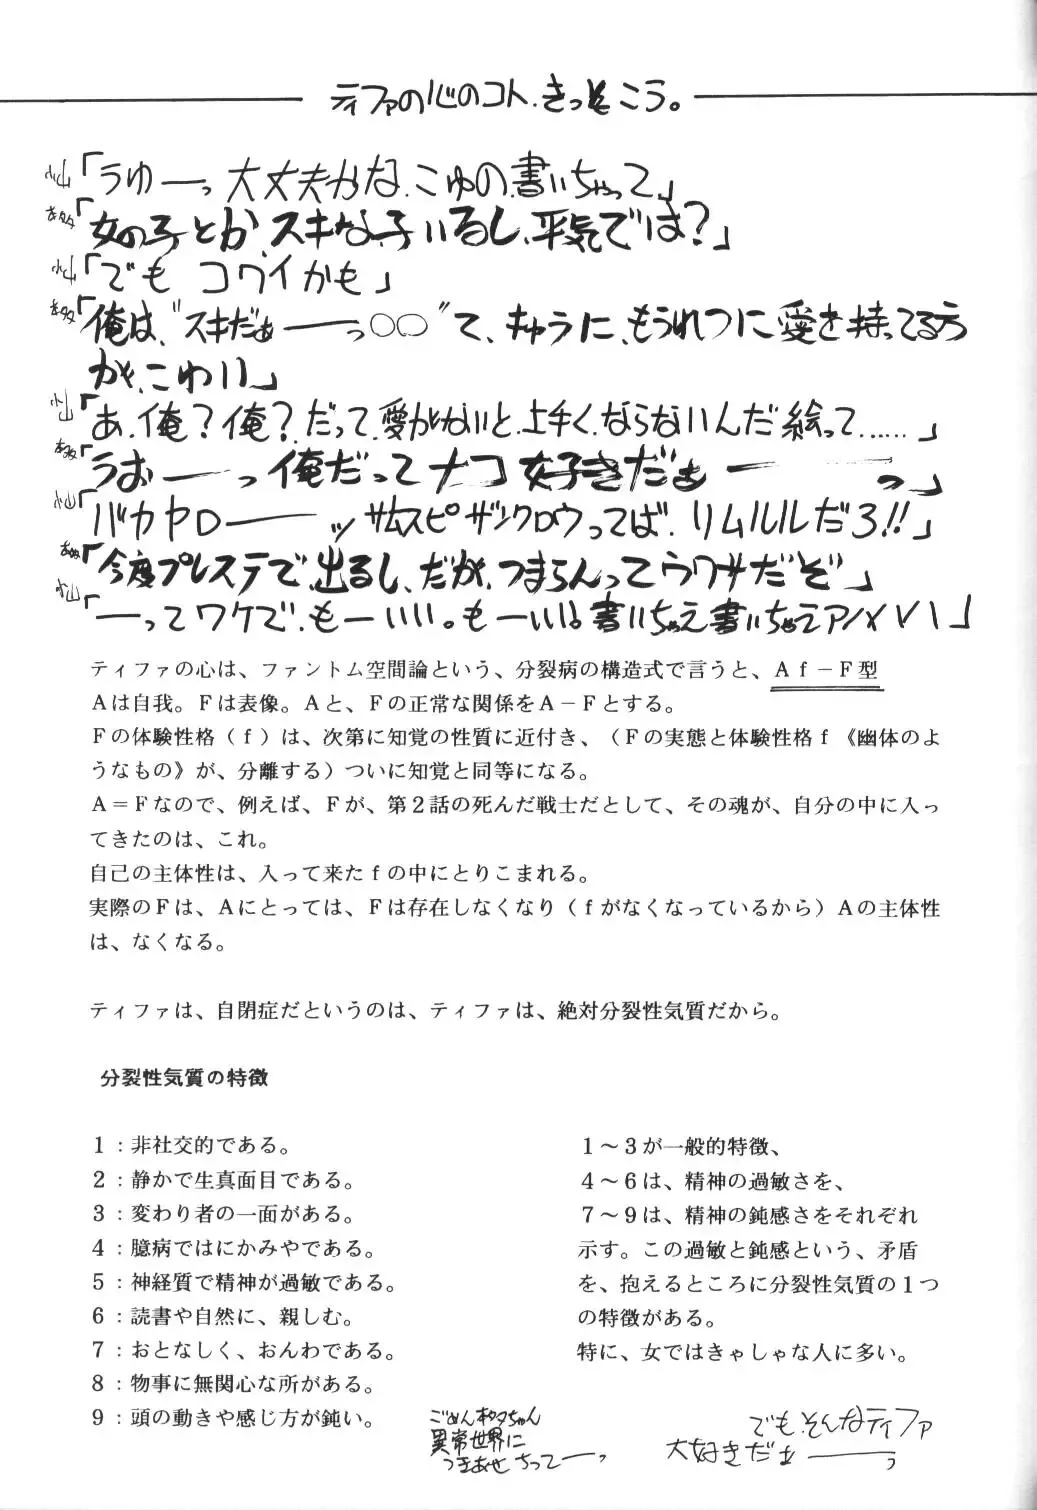 ティファの心のコト.きっそこう。
小山「うゆーっ大丈夫かな.こゆの書いちゃって」
「女の子とか、スキな子いるし、平気では？」
小山「でも コワイかも」
「俺は、“スキだぉーーっ〇〇”て、キャラに、もうれつに愛を持ってる方
が、こわい」
小山「あ.俺？俺？.だって.愛がないと.上手く.ならないんだ絵って……」
「うおーーっ俺だってナコ好きだぉーーっ」
小山「バカヤローーーッサムスピザンクロウってば.リムルルだろ!!」
「今度プレステで、出るし、だが、つまらんってウワサだぞ」
小山「ーーってワケで、もーいい。もーいい。書いちゃえ書いちゃえアハハハ」
ティファの心は、ファントム空間論という、分裂病の構造式で言うと、Ａｆ－Ｆ型
Ａは自我。Ｆは表像。Ａと、Ｆの正常な関係をＡ－Ｆとする。
Ｆの体験性格（ｆ）は、次第に知覚の性質に近付き、（Ｆの実態と体験性格ｆ《幽体のよ
うなもの》が、分離する）ついに知覚と同等になる。
Ａ＝Ｆなので、例えば、Ｆが、第２話の死んだ戦士だとして、その魂が、自分の中に入っ
てきたのは、これ。
自己の主体性は、入って来たｆの中にとりこまれる。
実際のＦは、Ａにとっては、Ｆは存在しなくなり（ｆがなくなっているから）Ａの主体性
は、なくなる。
ティファは、自閉症だというのは、ティファは、絶対分裂性気質だから。
分裂性気質の特徴
１：非社交的である。
２：静かで生真面目である。
３：変わり者の一面がある。
４：臆病ではにかみやである。
５：神経質で精神が過敏である。
６：読書や自然に、親しむ。
７：おとなしく、おんわである。
８：物事に無関心な所がある。
９：頭の動きや感じ方が鈍い。
１～３が一般的特徴、
４～６は、精神の過敏さを、
７～９は、精神の鈍感さをそれぞれ
示す。この過敏と鈍感という、矛盾
を、抱えるところに分裂性気質の１つ
の特徴がある。
特に、女ではきゃしゃな人に多い。
ごめんちゃん
異常世界に
つきあわせちってーーっ
でも.そんなティファ
大好きだぉーーっ